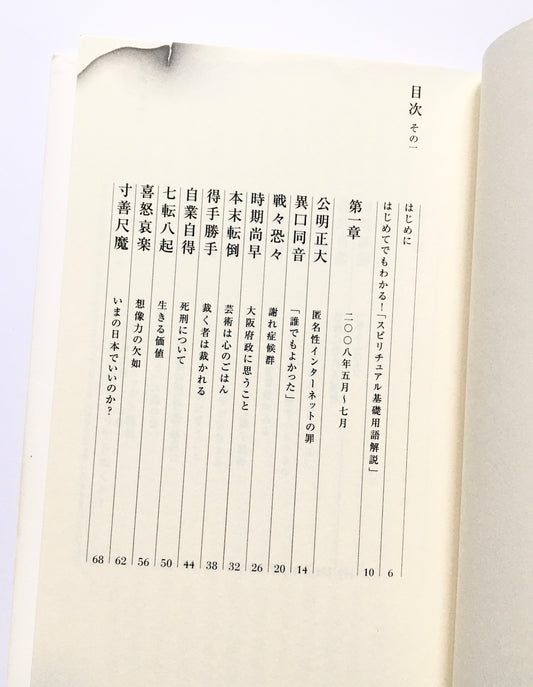 目次 その一
はじめに 6
はじめてでもわかる！「スピリチュアル基礎用語解説」 10
第一章 二〇〇八年五月〜七月
公明正大 匿名性インターネットの罪 14
異口同音 「誰でもよかった」 20
戦々恐々 謝れ症候群 26
時期尚早 大阪府政に思うこと 32
本末転倒 芸術は心のごはん 38
得手勝手 裁く者は裁かれる 44
自業自得 死刑について 50
七転八起 生きる価値 56
喜怒哀楽 想像力の欠如 62
寸善尺魔 いまの日本でいいのか？ 68